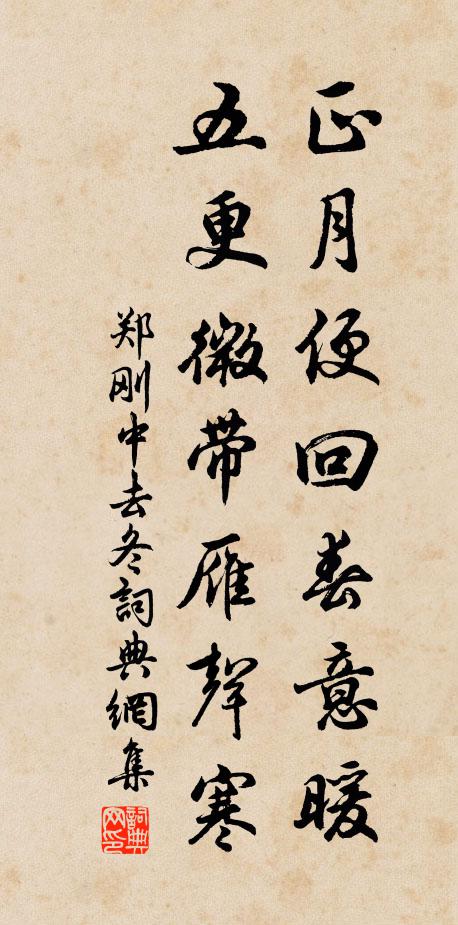 正月便回春意暖
五更微带雁聲寒
郑刚中去冬詞典網集
詞典网印